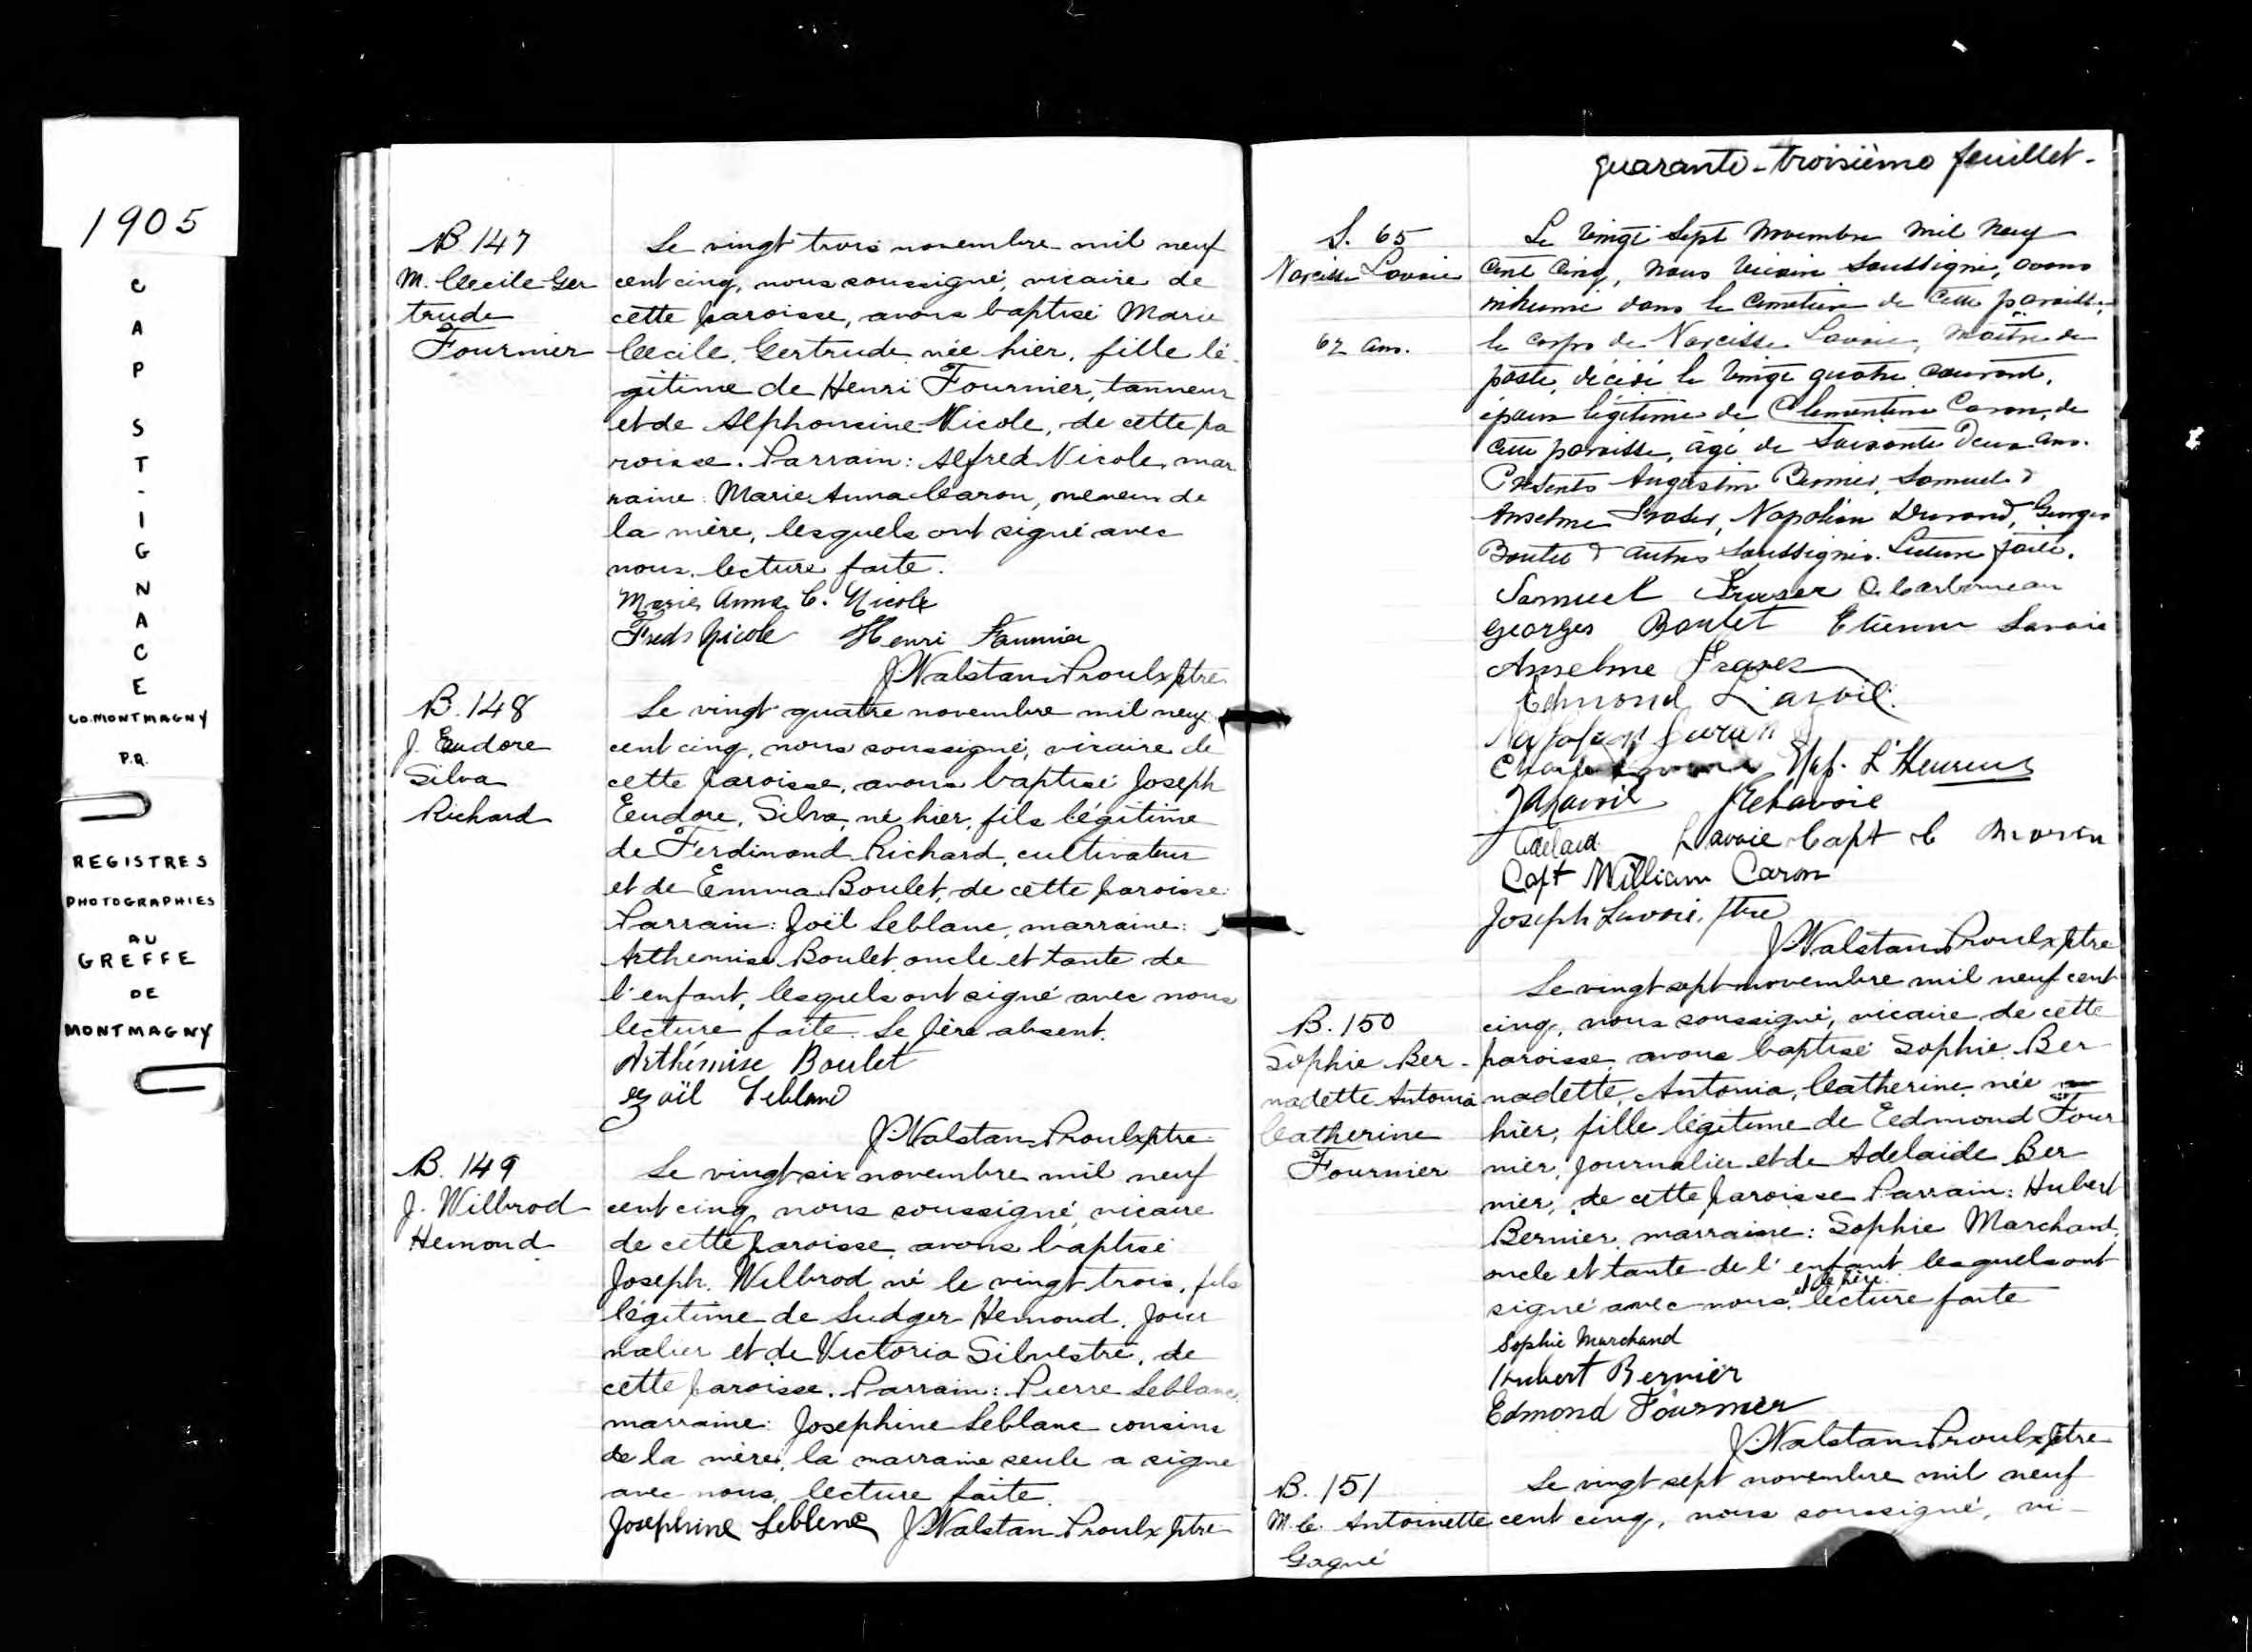 1905
CAP ST-IGNACE
CO. MONTMAGNY
P.Q.
REGISTRES
PHOTOGRAPHIES
AU
GREFFE
DE
MONTMAGNY
B. 147
M. Cecile-Ger
trude
Fournier
Le vingt trois novembre mil neuf
cent cinq, nous soussigné, vicaire de
cette paroisse, avons baptisé Marie
Cecile, Gertrude née hier, fille lé-
gitime de Henri Fournier, tanneur
et de Alphonsine Nicole, de cette pa
roisse. Parrain: Alfred Nicole, mar
raine: Marie Anna Caron, neveu de
la mère, lesquels ont signé avec
nous, lecture faite.
Marie Anna C. Nicole
Fred Nicole Henri Fournier
J. Walstan Proulx ptre
B. 148
J. Eudore
Silva
Richard
Le vingt quatre novembre mil neuf
cent cinq, nous soussigné, vicaire de
cette paroisse, avons baptisé Joseph
Eudore, Silva, né hier, fils légitime
de Ferdinand Richard, cultivateur
et de Emma Boulet, de cette paroisse.
Parrain: Joël Leblanc, marraine:
Arthemise Boulet oncle et tante de
l'enfant, lesquels ont signé avec nous
lecture faite. Le père absent.
Arthémise Boulet
Joël Leblanc
J. Walstan Proulx ptre
B. 149
J. Wilbrod
Hemond
Le vingt-six novembre mil neuf
cent cinq nous soussigné, vicaire
de cette paroisse, avons baptisé
Joseph, Wilbrod né le vingt trois, fils
légitime de Ludger Hemond, jour
nalier et de Victoria Silvestre, de
cette paroisse. Parrain: Pierre Leblanc,
marraine: Josephine Leblanc cousine
de la mère, la marraine seule a signé
avec nous, lecture faite.
Josephine Leblanc J. Walstan Proulx ptre
quarante-troisième feuillet-
S. 65
Narcisse Lavoie
62 ans.
Le vingt sept novembre mil neuf
cent cinq, nous vicaire soussigné, avons
inhumé dans le cimetière de cette paroisse,
le corps de Narcisse Lavoie, maître de
poste, décédé le vingt quatre courant,
époux légitime de Clementine Caron, de
cette paroisse, âgé de soixante deux ans.
Présents Augustin Bernier, Samuel &
Anselme Fraser, Napoléon Durand, Georges
Boulet & autres soussignés. Lecture faite.
Samuel Fraser Carbonneau
Georges Boulet Etienne Lavoie
Anselme Fraser
Edmond Lavoie
Napoleon Duran
Nap. L'Heureux
Lavoie Capt C Morin
Capt William Caron
Joseph Lavoie, ptre
J. Walstan Proulx ptre
B. 150
Sophie Ber-
nadette Antonia
Catherine
Fournier
Le vingt sept novembre mil neuf cent
cinq, nous soussigné, vicaire de cette
paroisse avons baptisé Sophie Ber
nadette, Antonia, Catherine née
hier, fille légitime de Edmond Four
nier, journalier et de Adelaïde Ber
nier, de cette paroisse Parrain: Hubert
Bernier, marraine: Sophie Marchand,
oncle et tante de l'enfant lesquels ont
signé avec nous, et le père. lecture faite
Sophie Marchand
Hubert Bernier
Edmond Fournier
J. Walstan Proulx ptre
B. 151
M. C. Antoinette
Gagné
Le vingt sept novembre mil neuf
cent cinq, nous soussigné, vi-